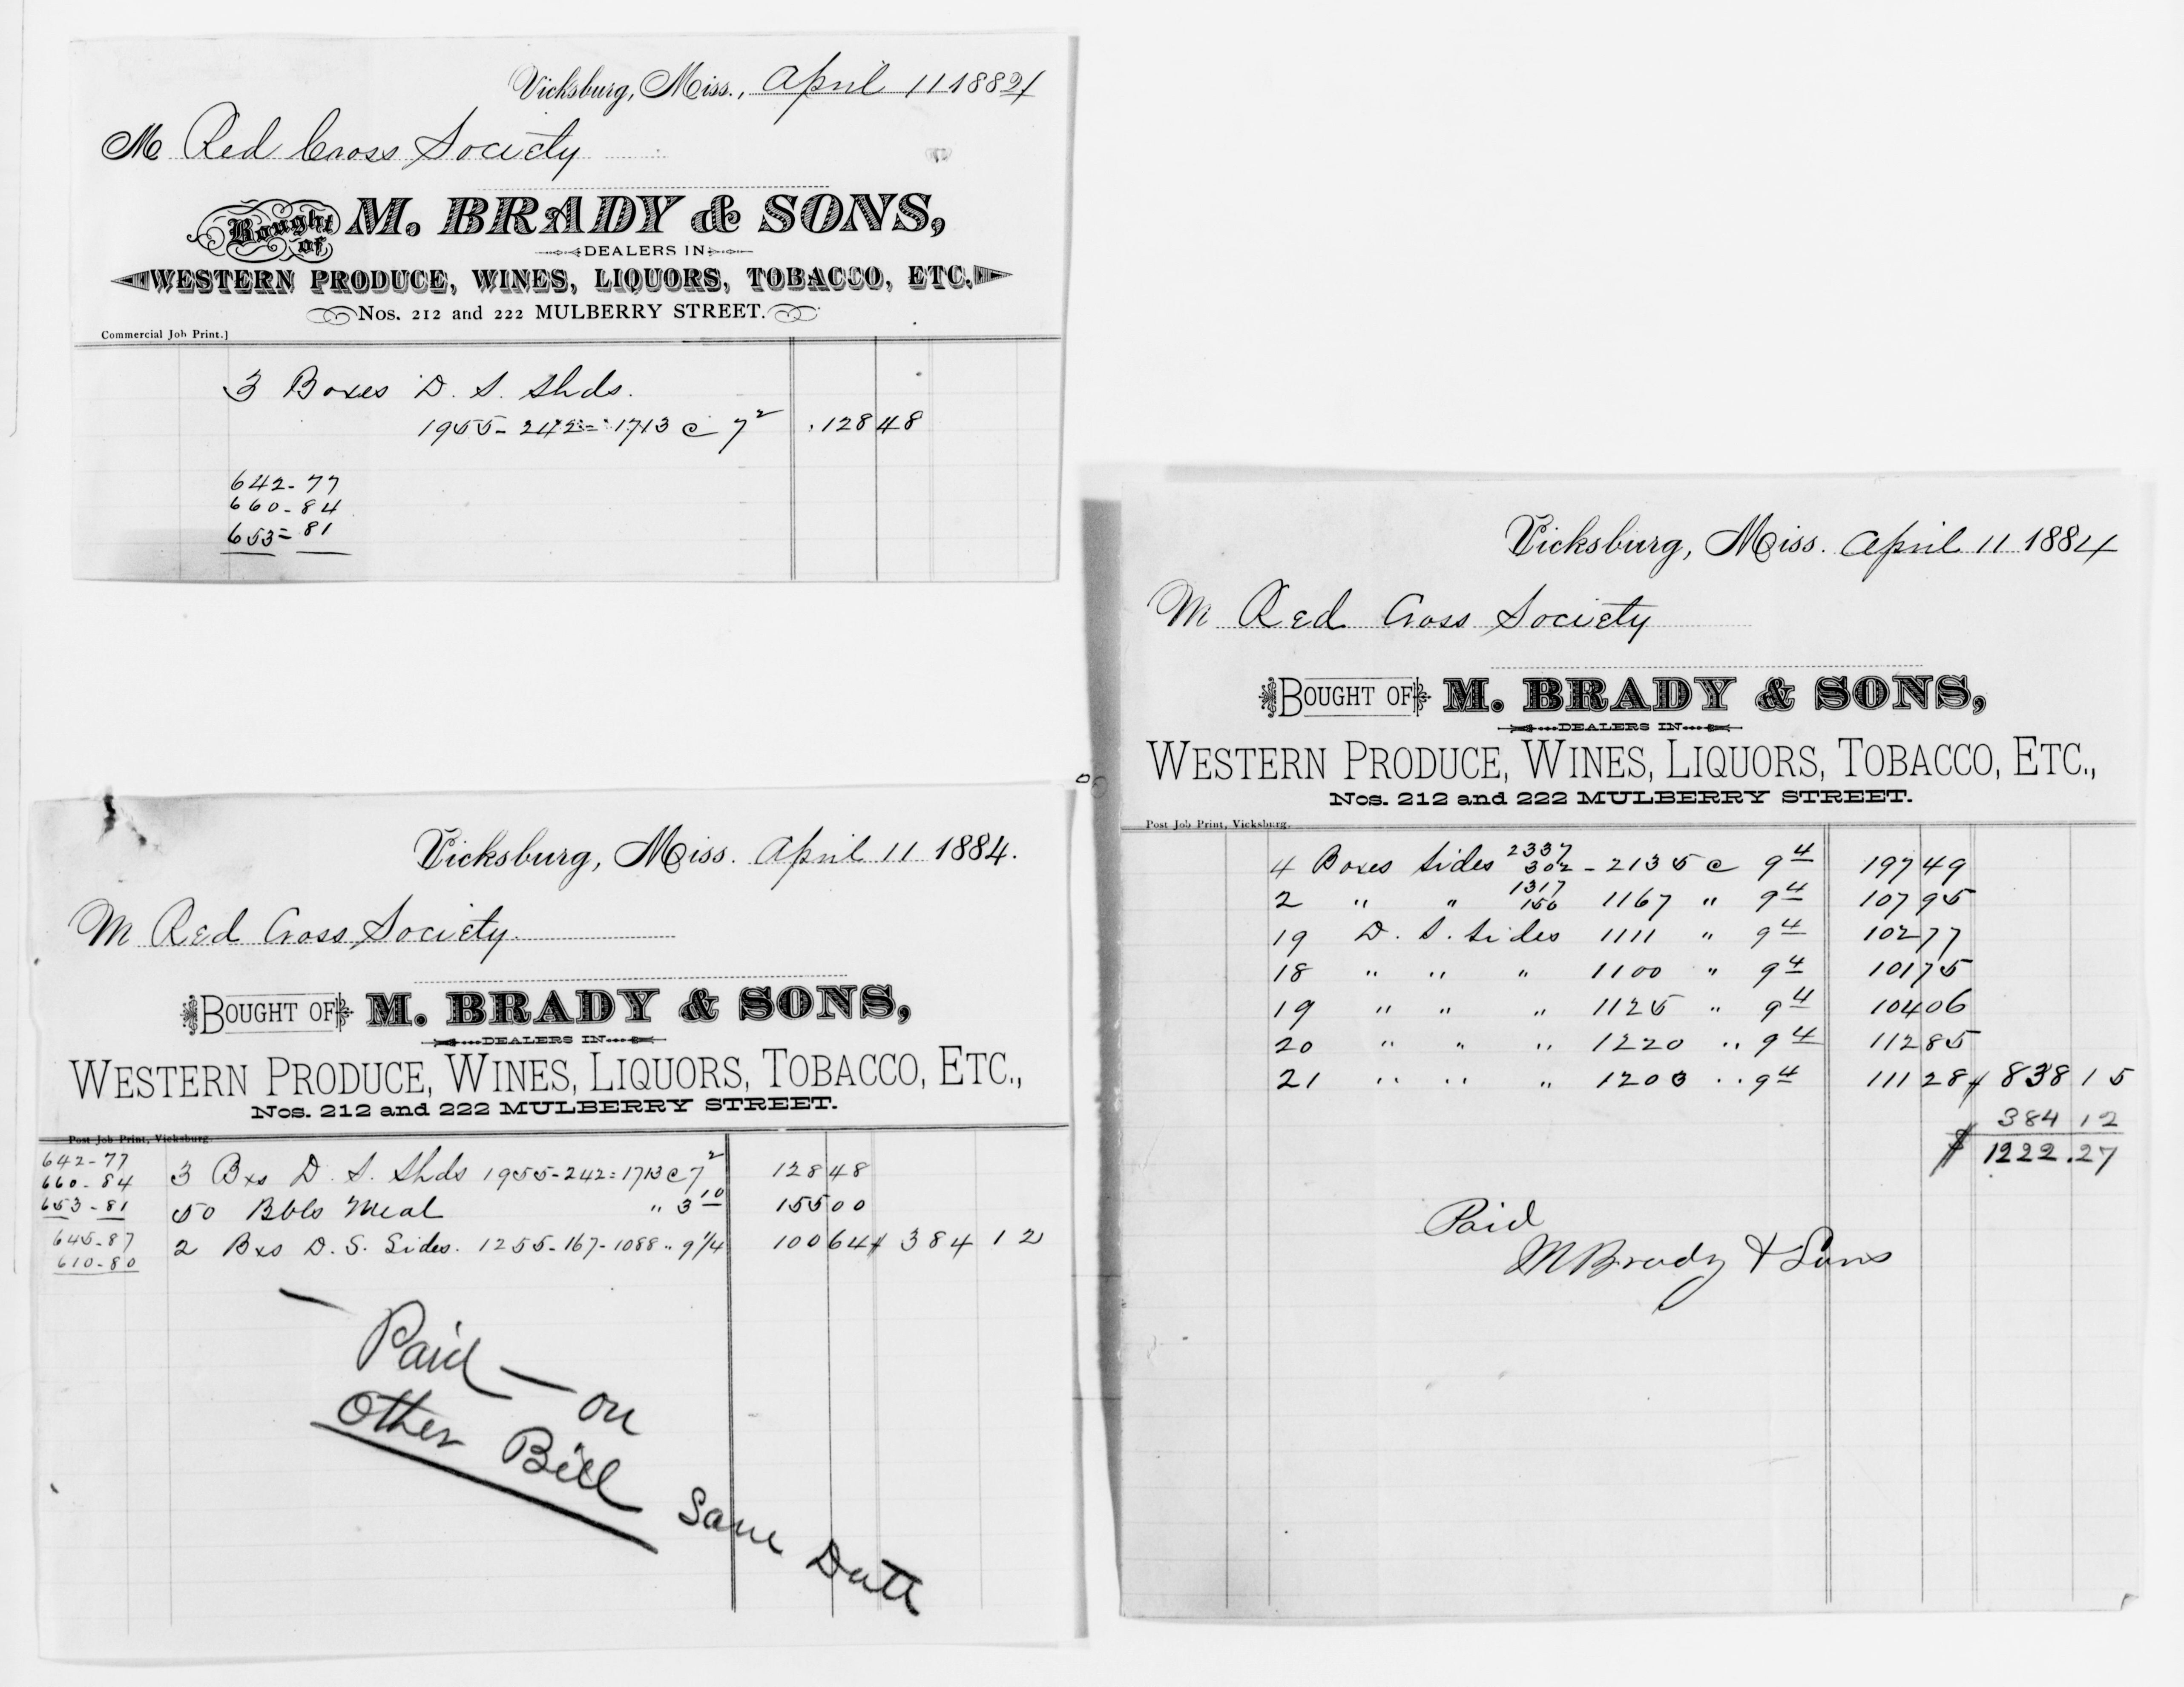 Vicksburg, Miss., April 11 1884
M Red Cross Society
Bought of M. BRADY & SONS,
DEALERS IN
WESTERN PRODUCE, WINES, LIQUORS, TOBACCO, ETC.
Nos. 212 and 222 MULBERRY STREET.
Commercial Job Print.]
3 Boxes D. S. Shds.
1955 - 242 = 1713 c 7 2 128 48
642 - 77
660 - 84
653 = 81
Vicksburg, Miss. April 11 1884.
M Red Cross Society
BOUGHT OF M. BRADY & SONS,
DEALERS IN
WESTERN PRODUCE, WINES, LIQUORS, TOBACCO, ETC.,
Nos. 212 and 222 MULBERRY STREET.
Post Job Print, Vicksburg.
642 - 77
660 - 84 3 Bxs D. S. Shds 1955 - 242 = 1713 c 7 2 128 48
653 - 81 50 Bbls Meal " 3 10 155 00
645 - 87 2 Bxs D. S. Sides. 1255 - 167 - 1088 " 9 1/4 100 64 384 12
610 - 80
Paid — on
Other Bill same Date
Vicksburg, Miss. April 11 1884
M Red Cross Society
BOUGHT OF M. BRADY & SONS,
DEALERS IN
WESTERN PRODUCE, WINES, LIQUORS, TOBACCO, ETC.,
Nos. 212 and 222 MULBERRY STREET.
Post Job Print, Vicksburg.
4 Boxes Sides 2337 302 - 2135 c 9 4 197 49
2 " " 1317 150 1167 " 9 4 107 95
19 D. S. Sides 1111 " 9 4 102 77
18 " " " 1100 " 9 4 101 75
19 " " " 1125 " 9 4 104 06
20 " " " 1220 " 9 4 112 85
21 " " " 1203 " 9 4 111 28 838 15
384 12
$ 1222.27
Paid
M Brady & Sons